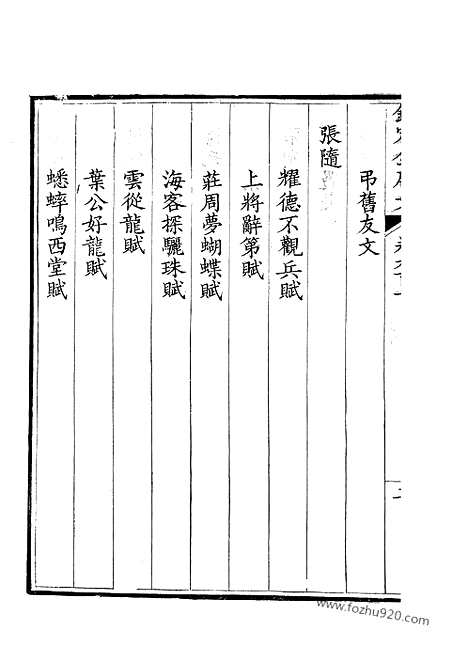 弔舊友文
張隨
耀德不觀兵賦
上將辭第賦
莊周夢蝴蝶賦
海客探驪珠賦
雲從龍賦
葉公好龍賦
蟋蟀鳴西堂賦
www.fozhu920.com